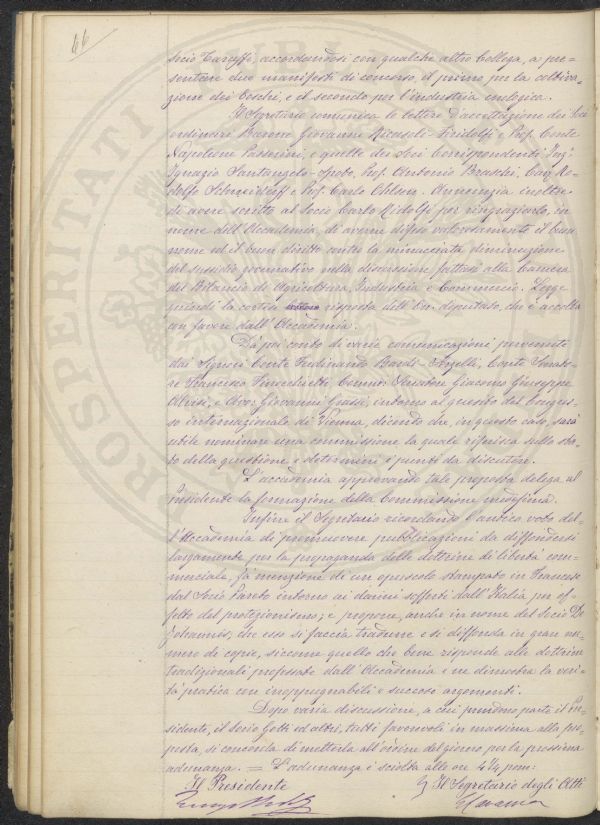 66
socio Caruffo, accordandosi con qualche altro Collega, a pre=
sentare due manifesti di concorso, il primo per la coltiva=
zione dei boschi, e il secondo per l'industria enologica.
Il Segretario comunica le lettere d'accettazione dei Soci
ordinari Barone Giovanni Ricasoli-Firidolfi e Prof. Conte
Napoleone Passerini, e quelle dei Soci Corrispondenti Ing.
Ignazio Santangelo-Spoto, Prof. Antonio Braschi, Cav. Ro=
dolfo e Prof. Carlo Ohlsen. Annunzia inoltre
di avere scritto al Socio Carlo Ridolfi per ringraziarlo, in
nome dell'Accademia, di averne difeso valorosamente il buon
nome ed il buon diritto contro la minacciata diminuzione
del sussidio governativo nella discussione fattasi alla Camera
del Bilancio di Agricoltura, Industria e Commercio. Legge
quindi la cortese risposta dell'On. deputato, che è accolta
con favore dall'Accademia.
Dà poi conto di varie comunicazioni pervenute
dai Signori Conte Ferdinando Bardi-Serzelli, Conte Senato=
re Francesco Finocchietti, Comm. Senatore Giacomo Giuseppe
Alvisi, e Avv. Giovanni Grassi, intorno ai quesiti del Congres=
so internazionale di Vienna, dicendo che, in questo caso, sarà
utile nominare una commissione la quale riferisca sullo sta=
to della questione e determini i punti da discutere.
L'accademia approvando tale proposta delega al
Presidente la formazione della Commissione medesima.
Infine il Segretario ricordando l'antico voto del=
l'Accademia di promuovere pubblicazioni da diffondersi
largamente per la propaganda delle dottrine di libertà com=
merciale, fa menzione di un opuscolo stampato in Francese
dal Socio Pareto intorno ai danni sofferti dall'Italia per ef=
fetto del protezionismo; e propone, anche in nome del Socio De
Johannis, che esso si faccia tradurre e si diffonda in gran nu=
mero di copie, siccome quello che bene risponde alle dottrine
tradizionali professate dall'Accademia e ne dimostra la veri=
tà pratica con inoppugnabili e succosi argomenti.
Dopo varia discussione, a cui prendono parte il Pre=
sidente, il Socio Gotti ed altri, tutti favorevoli in massima alla pro=
posta, si concorda di metterla all'ordine del giorno per la prossima
adunanza. = L'adunanza è sciolta alle ore 4 1/4 pom:
Il Presidente Il Segretario degli Atti
PROSPERITATI PUBLICAE